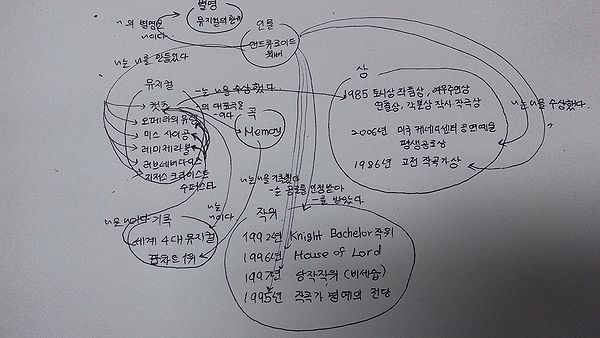 별명
뮤지컬의 황제
~의 별명은
~이다.
인물
앤드류 로이드
웨버
~는 ~를 만들었다
뮤지컬
캣츠
오페라의 유령
미스 사이공
레미제라블
러브네버다이즈
지저스 크라이스트
수퍼스타
~는 ~을 수상했다.
~의 대표곡은
곡
Memory
상
1985 토니상 작품상, 여우주연상
연출상, 각본상 작시 작곡상
2006년 미국 케네디센터 공연예술
평생공로상
1986년 고전 작곡가상
~는 ~을 수상했다.
~는 ~을 기록했다
~는 공로를 인정받아
~를 받았다.
~는 ~이다
기록
세계 4대 뮤지컬
팝차트 1위
~는
~이다
작위
1992년 Knight Bachelor 작위
1996년 House of Lord
1997년 남작작위 (비세습)
1995년 작곡가 명예의 전당